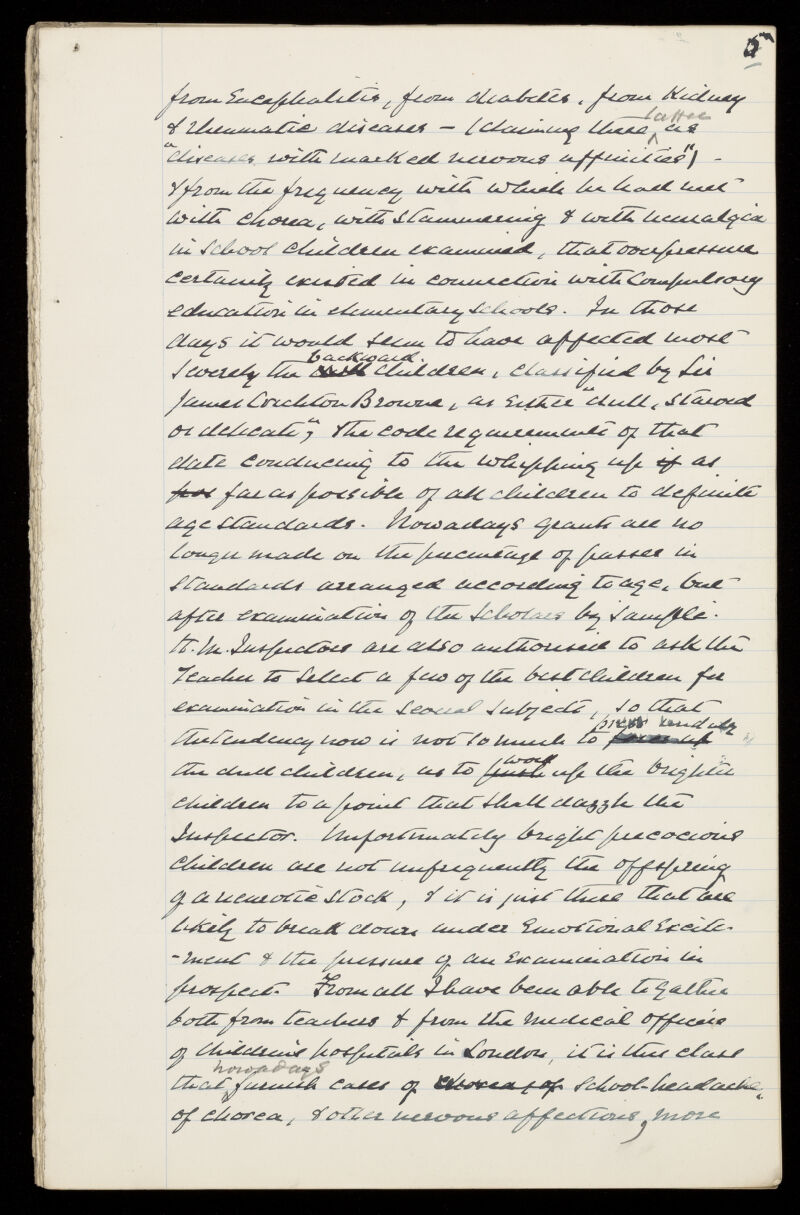 5
from Encephalitis, from diabetes, from Kidney
& rheumatic diseases – (claiming these latter as
"diseases with marked nervous affinities") -
& from the frequency with which he had met
with chorea, with stammering & with neuralgia
in school children examined, that overpressure
certainly existed in connection with Compulsory
education in elementary schools. In those
days it would seem to have affected most
severely the backward children, classified by Sir
James Crichton Browne, as either "dull, starved
or delicate"; & the code requirements of that
date conducing to the whipping up if as
far as possible of all children to definite
age standards. Nowadays grants are no
longer made on the percentage of passes in
Standards arranged according to age, but
after examination of the Scholars by sample.
H. M. Inspectors are also authorised to ask the
Teacher to select a few of the best children for
examination in the several subjects, so that
the tendency now is not so much to press unduly
the dull children, as to push work up the brighter
children to a point that shall dazzle the
Inspector. Unfortunately bright precocious
children are not unfrequently the offspring
of a neurotic stock, & it is just these that are
likely to break down under Emotional Excite-
-ment & the pressure of an Examination in
prospect. From all I have been able to gather
both from teachers & from the medical officers
of children's hospitals in London, it is this class
that nowadays furnish cases of chorea, of School-headache,
of chorea, & other nervous affections, more